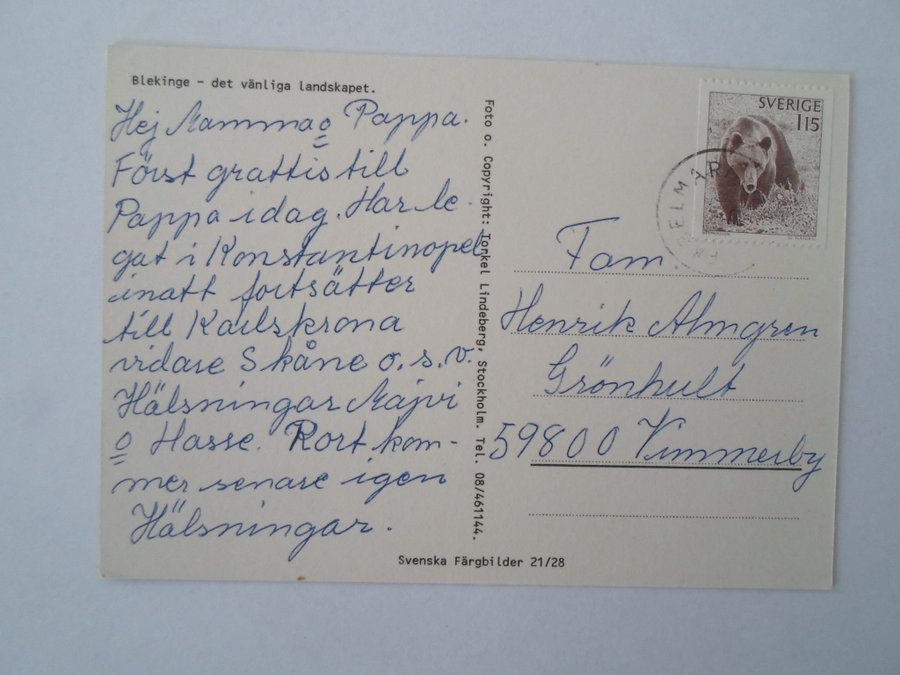 Blekinge - det vänliga landskapet.
Hej Mamma o Pappa.
Först grattis till
Pappa idag. Har le-
gat i Konstantinopel
inatt fortsätter
till Karlskrona
vidare Skåne o.s.v.
Hälsningar Majvi
o Hasse. Kort kom-
mer senare igen
Hälsningar.
Foto o. Copyright: Torkel Lindeberg, Stockholm. Tel. 08/461144.
SVERIGE
115
Fam.
Henrik Almgren
Grönhult
59800 Vimmerby
Svenska Färgbilder 21/28